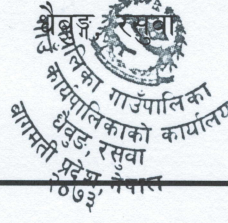 थैबुङ्ग, रसुवा
गाउँपालिका
कार्यपालिकाको कार्यालय
धैबुङ, रसुवा
बागमती प्रदेश, नेपाल
२०७३